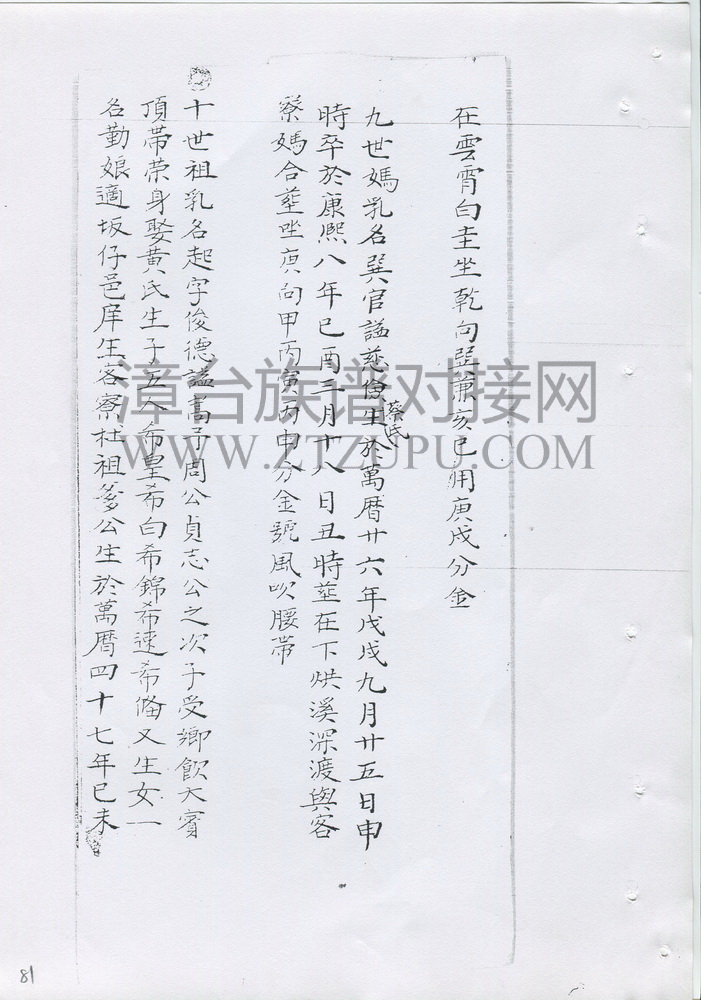 在雲霄白圭坐乾向巽兼亥巳用庚戌分金
九世媽乳名巽官謚慈儉生於萬曆廿六年戊戌九月廿五日申
蔡氏
時卒於康熙八年己酉三月十八日丑時塟在下烘溪深渡與客
寮媽合塟坐庚向甲丙寅丙申分金號風吹腰帶
十世祖乳名起字俊德謚篤子周公貞志公之次子受鄉飲大賓
頂帶荣身娶黃氏生子五人希皇希白希錦希速希脩又生女一
名勤娘適坂仔邑庠生客寮杜祖爹公生於萬曆四十七年己未
漳台族谱对接网
WWW.ZTZUPU.COM
81